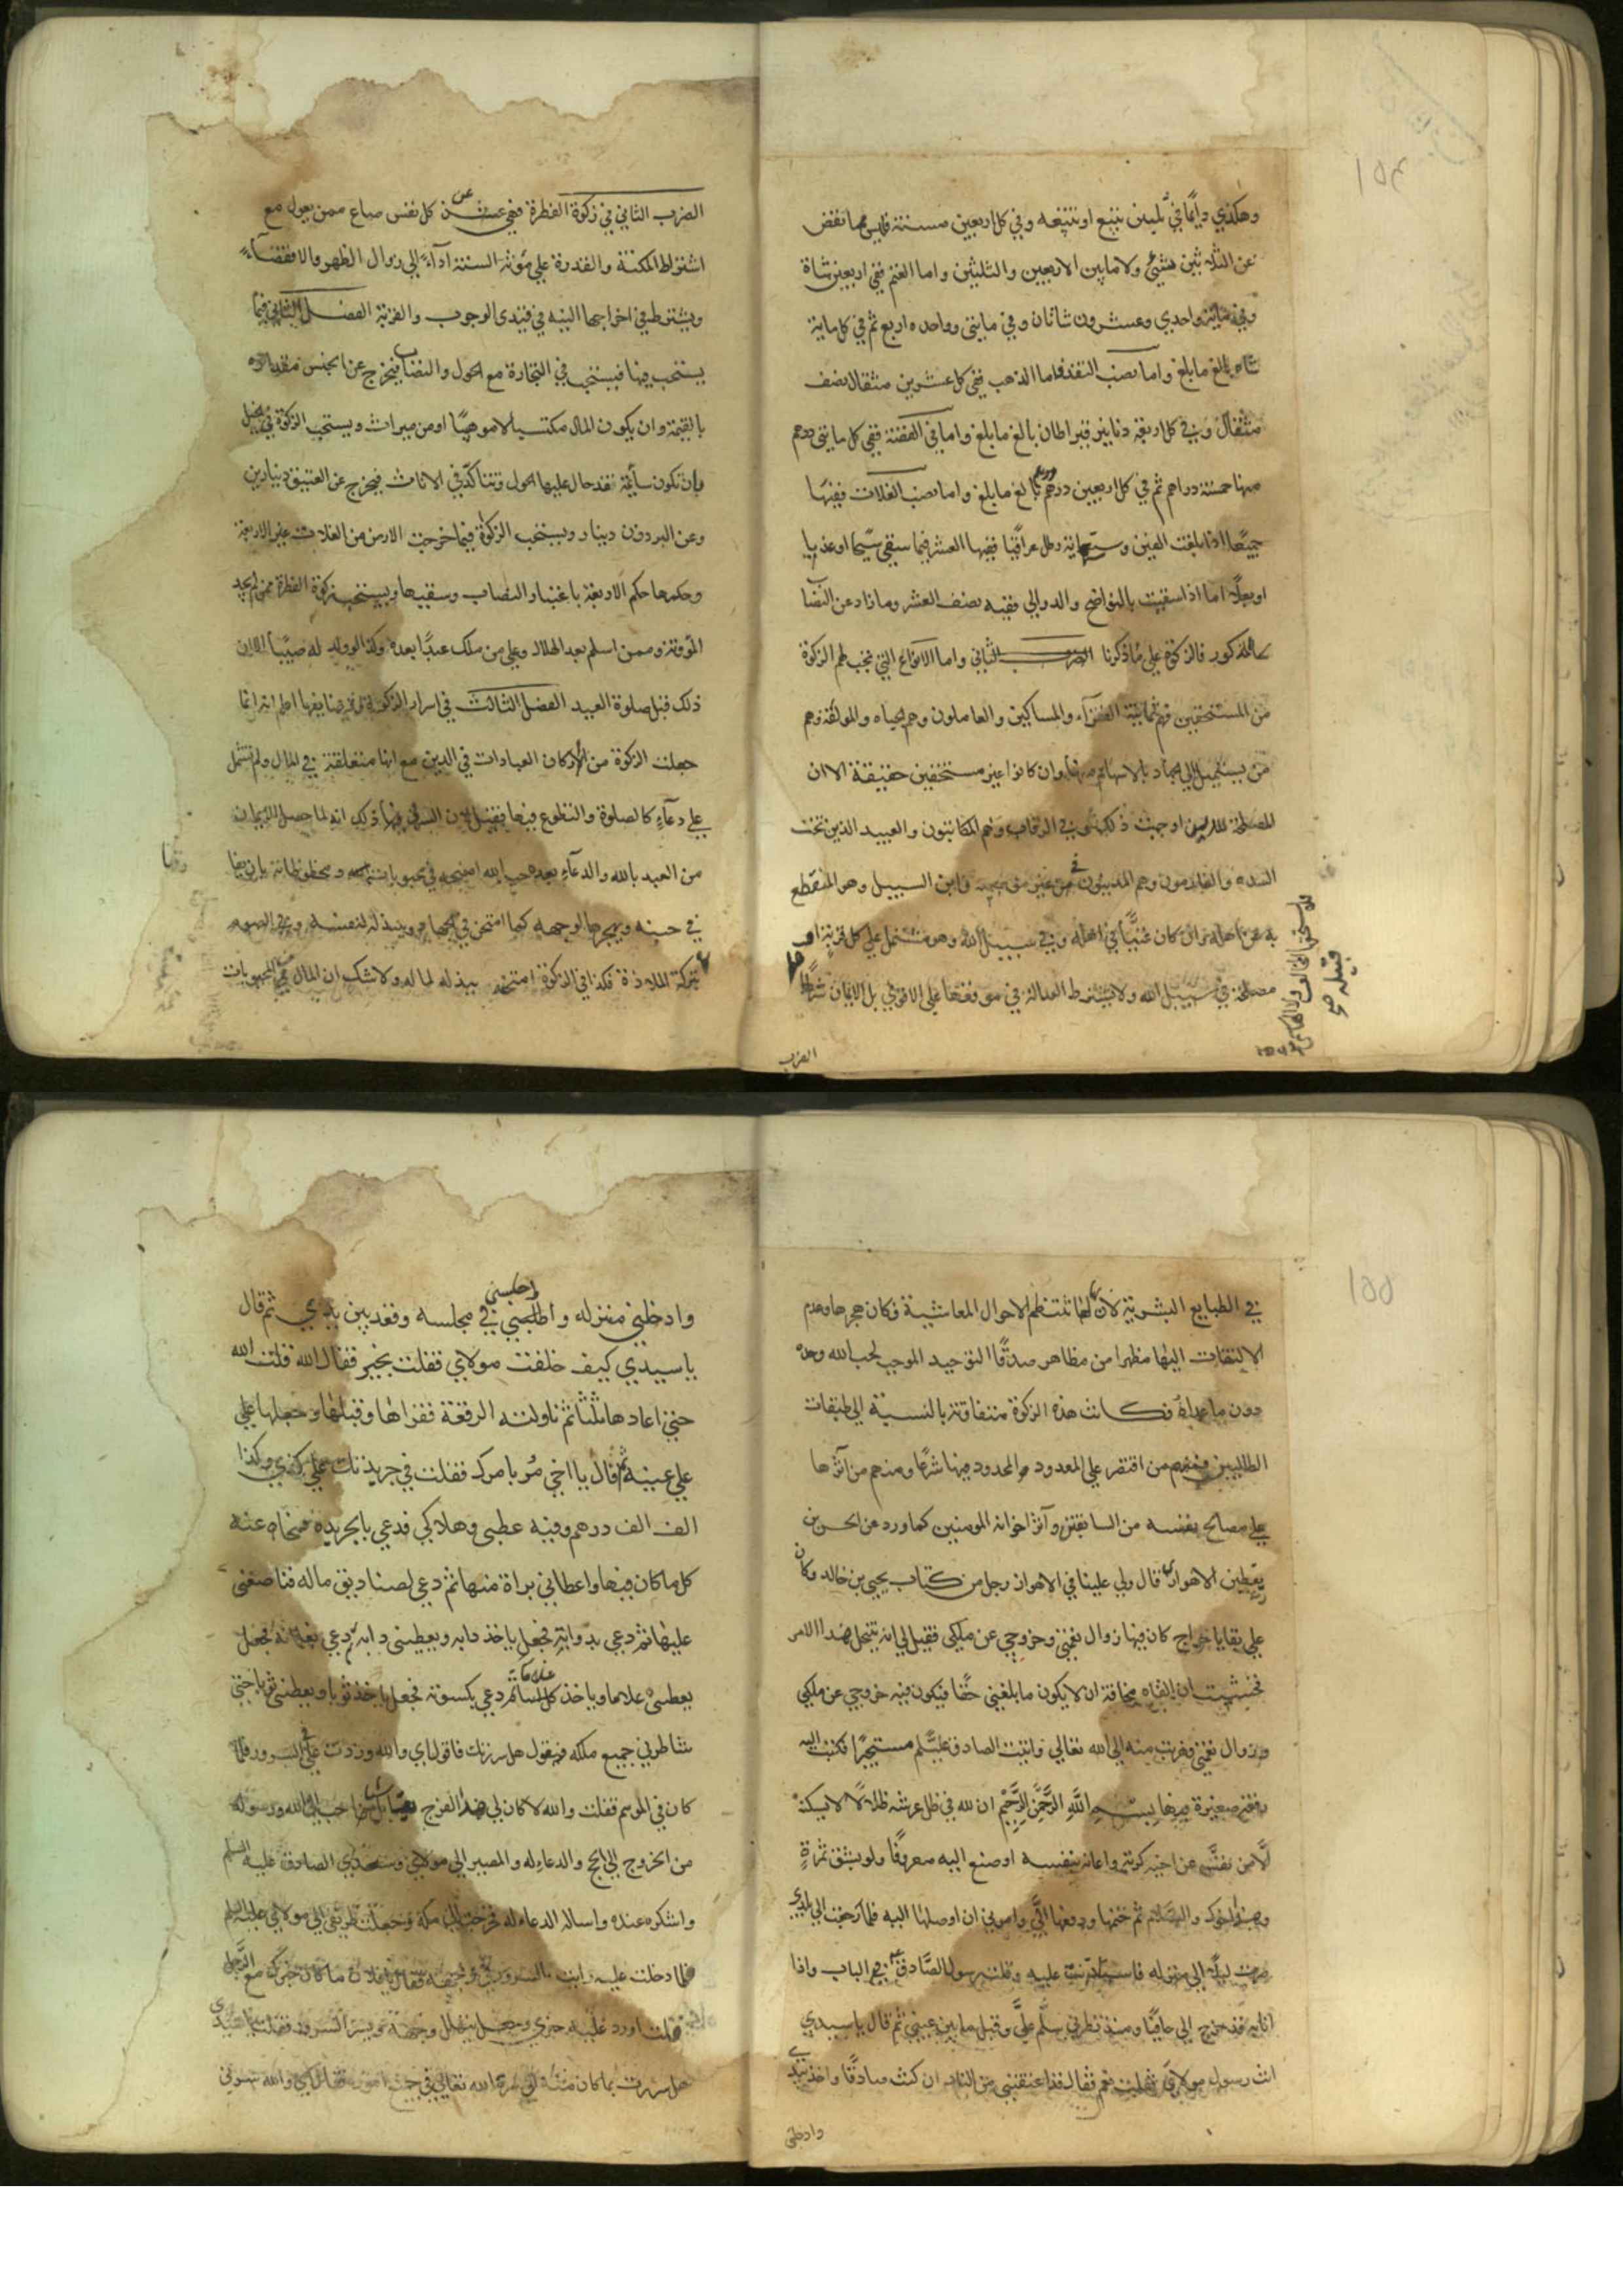 ١٥٤
وهكذي دايما في ثلثين تبيع او تبيعه وفي كل اربعين مسنة فليس فيما نقص
عن الثلاثين شيئ ولا ما بين الاربعين والثلثين واما الغنم ففي اربعين شاة
وفي ماية واحدي وعشرون شاتان وفي مايتى وواحده اربع ثم في كل ماية
شاه بالغ ما بلغ واما نصب النقد فاما الذهب ففي كل عشرين مثقال نصف
مثقال وفي كل اربعة دنانير قيراطان بالغ ما بلغ واما في الفضة ففي كل مايتى درهم
منها خمسة دراهم ثم في كل اربعين درهم درهم بالغ ما بلغ واما نصب الغلات ففيها
جميعا اذا بلغت الفين وسبعماية رطل عراقيا ففيها العشر فيما سقي سيحا او عذيا
او بعلا اما اذا سقيت بالنواضح والدوالي ففيه نصف العشر وما زاد عن النصاب
المذكور فالزكوة على ما ذكرنا الضرب الثاني واما الانواع التي تجب لهم الزكوة
من المستحقين فهم ثمانية الفقرآء والمساكين والعاملون وهم الجباه والمولفة وهم
من يستميل الى الجهاد بالاسهام منها وان كانوا غير مستحقين حقيقة الا ان
المصلحة للدين اوجبت ذلك وفي الرقاب وهم المكاتبون والعبيد الذين تحت
الشده والغارمون وهم المديون في غير معصية وابن السبيل وهو المنقطع
به عن اهله وان كان غنيا في اهله وفي سبيل الله وهو مشتمل علي كل قربة او
مصلحة في سبيل الله ولا يشترط العدالة في موقعها على الاقوي بل الايمان شرط
الضرب
الضرب الثاني في زكوة الفطرة ففي عن كل نفس صاع ممن يعول مع
اشتراط المكنة والقدرة علي مؤنة السنة ادآء الي زوال الظهر والا فقضآء
ويشترط في اخراجها النيه في فيندى الوجوب والقربة الفصل الثاني فيما
يستحب فيها فيستحب في التجارة مع الحول والنصاب فيخرج عن الجنس مقداره
بالقيمة وان يكون المال مكتسبا لا موهبا او من ميراث ويستحب الزكوة في الخيل
بان تكون سائمة نقد حال عليها الحول وتتاكد في الاناث فيخرج عن العتيق دينارين
وعن البرذون دينار ويستحب الزكاة فيما اخرجت الارض من الغلات غير الاربعة
وحكمها حكم الاربعة باعتبار النصاب وسقيها ويستحب زكوة الفطرة ممن لم يجد
المؤنة وممن اسلم بعد الهلال وعلي من ملك عبدا بعده وكذا لو ولد له صبيا الا ان
ذلك قبل صلوة العيد الفصل الثالث في اسرار الزكوة ووضايفها اعلم انه انما
جعلت الزكوة من اركان العبادات في الدين مع انها متعلقة في المال ولم تشتمل
علي دعآء كالصلوة والتطوع فيها فقيل ان السر فيها ذلك انه لما حصل الايمان
من العبد بالله والدعآء بعده حب الله امتحنه في محبوباته
في حبه ويهجرها لوجهه كما امتحن في الجهاد ويبذله لنفسه وفي الصوم
بتركة الملاذة فكذا في الزكوة امتحنه ببذله لماله ولا شك ان المال من المحبوبات
١٥٥
في الطبايع البشرية لان بها تنتظم الاحوال المعاشية فكان هجرها وعدم
الالتفات اليها مظهرا من مظاهر صدق التوحيد الموجب لحب الله وحده
دون ما عداه وكانت هذه الزكوة متفاوتة بالنسبة الى طبقات
الطالبين فمنهم من اقتصر علي المعدود والمحدود منها شرعا ومنهم من آثرها
علي مصالح نفسه من السابقين وآثر اخوانه المومنين كما ورد عن الحسن بن
يقطين الاهوازي قال ولي علينا في الاهواز رجل من كتاب يحيى بن خالد وكان
علي بقايا خراج كان فيها زوال نعمتي وخروجي عن ملكي فقيل لي انه ينتحل هذا الامر
فخشيت ان القاه مخافة ان لا يكون ما بلغني حقا فيكون فيه خروجي عن ملكي
وزوال نعمتي فهربت منه الي الله تعالي واتيت الصادق عليه السلام مستجيرا فكتب اليه
رقعة صغيرة فيها بسم الله الرحمن الرحيم ان لله في ظل عرشه ظلالا لا يسكنه
الا من نفس عن اخيه كربته واعانه بنفسه او صنع اليه معروفا ولو بشق تمرة
وهذا اخوك والسلام ثم ختمها ودفعها الي وامرني ان اوصلها اليه فلما رجعت الي بلدي
صرت ليلا الي منزله فاستاذنت عليه وقلت رسول الصادق في الباب واذا
انا به قد خرج الي حافيا ومنذ نظرني سلم علي وقبل ما بين عيني ثم قال يا سيدي
انت رسول مولاي فقلت نعم فقال قد اعتقتني من النار ان كنت صادقا واخذ بيدي
وادخلني
وادخلني منزله واجلسني في مجلسه وقعد بين يدي ثم قال
يا سيدي كيف خلفت مولاي فقلت بخير فقال الله فلت الله
حتي اعادها ثلثا ثم ناولته الرقعة فقراها وقبلها وجعلها علي
علي عينيه ثم قال يا اخي مر بامرك فقلت في جريدتك علي كذي وكذا
الف الف درهم وفيه عطبى وهلاكي فدعي بالجريده فمحاه عنه
كل ما كان فيها واعطاني براة منها ثم دعي لصناديق ماله فناصفني
عليها ثم دعي بدوابه فجعل ياخذ دابه ويعطيني دابه ثم دعي بغلمانه فجعل
يعطيني غلاما وياخذ غلاما ثم دعي بكسوته فجعل ياخذ ثوبا ويعطيني ثوبا حتي
شاطرني جميع ملكه فيقول هل سررتك فاقول اي والله وزدت علي السرور فلما
كان في الموسم فقلت والله لا كان لي هذا الفرج بشئ احب الي الله ورسوله
من الخروج الي الحج والدعاء له والمصير الي مولاي وسيدي الصادق عليه السلم
واشكره عنده واساله الدعاء له فخرجت الي مكة وجعلت طريقي الي مولاي عليه السلم
فلما دخلت عليه رايت السرور في وجهه فقال يا فلان ما كان خبرك مع الرجل
فجعلت اورد عليه خبري وجعل يتهلل وجهه ويسر السرور فقلت يا سيدي
هل سررت بما كان منه الي سره الله تعالي في جميع اموره فقال اي والله سرني